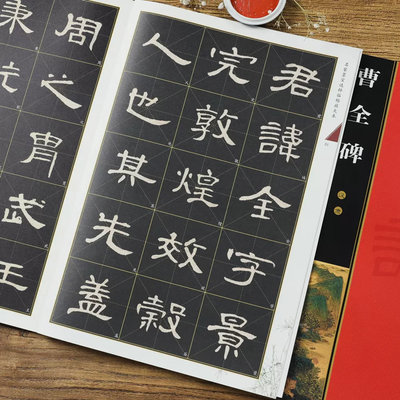 曹全碑
君諱全字景
完敦煌效穀
人也其先蓋
周之胄武王
秉